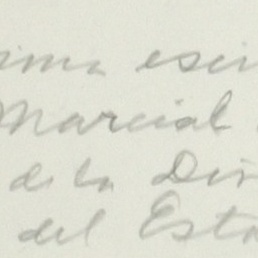 sima escri
Marcial
de la Dir
del Esta